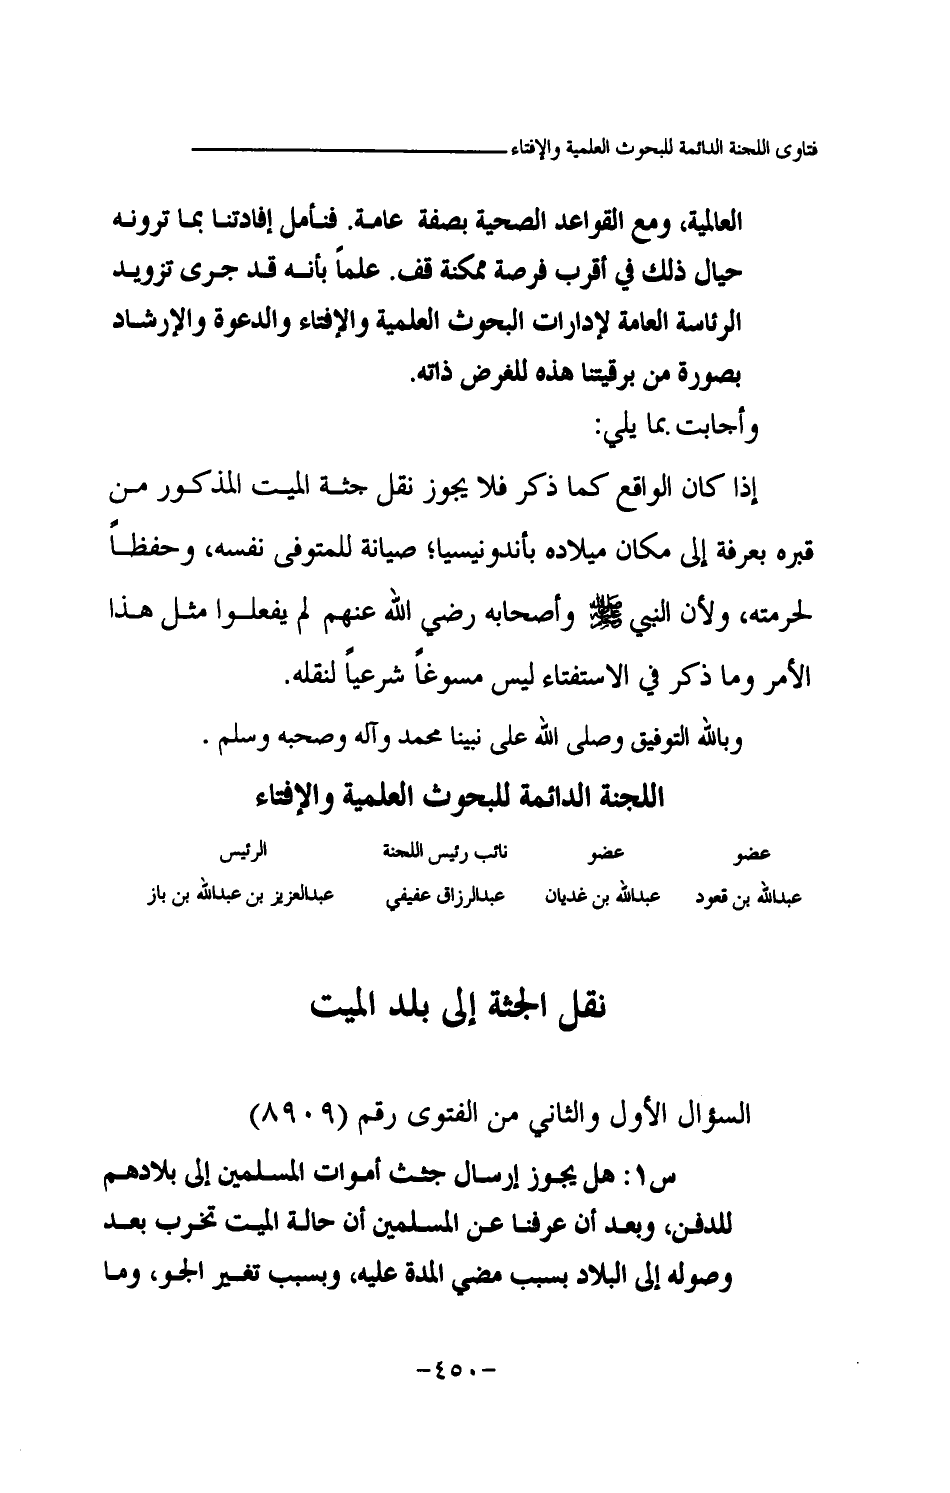 فتاوى اللجنة الدائمة للبحوث العلمية والإفتاء
العالمية، ومع القواعد الصحية بصفة عامة. فنأمل إفادتنا بما ترونه
حيال ذلك في أقرب فرصة ممكنة قف. علماً بأنه قد جرى تزويد
الرئاسة العامة لإدارات البحوث العلمية والإفتاء والدعوة والإرشاد
بصورة من برقيتنا هذه للغرض ذاته.
وأجابت بما يلي:
إذا كان الواقع كما ذكر فلا يجوز نقل جثة الميت المذكور من
قبره بعرفة إلى مكان ميلاده بأندونيسيا؛ صيانة للمتوفى نفسه، وحفظاً
لحرمته، ولأن النبي ﷺ وأصحابه رضي الله عنهم لم يفعلوا مثل هذا
الأمر وما ذكر في الاستفتاء ليس مسوغاً شرعياً لنقله.
وبالله التوفيق وصلى الله على نبينا محمد وآله وصحبه وسلم .
اللجنة الدائمة للبحوث العلمية والإفتاء
عضو عضو نائب رئيس اللجنة الرئيس
عبدالله بن قعود عبدالله بن غديان عبدالرزاق عفيفي عبدالعزيز بن عبدالله بن باز
نقل الجثة إلى بلد الميت
السؤال الأول والثاني من الفتوى رقم (٨٩٠٩)
س١: هل يجوز إرسال جثث أموات المسلمين إلى بلادهم
للدفن، وبعد أن عرفنا عن المسلمين أن حالة الميت تخرب بعد
وصوله إلى البلاد بسبب مضي المدة عليه، وبسبب تغير الجو، وما
-٤٥٠-